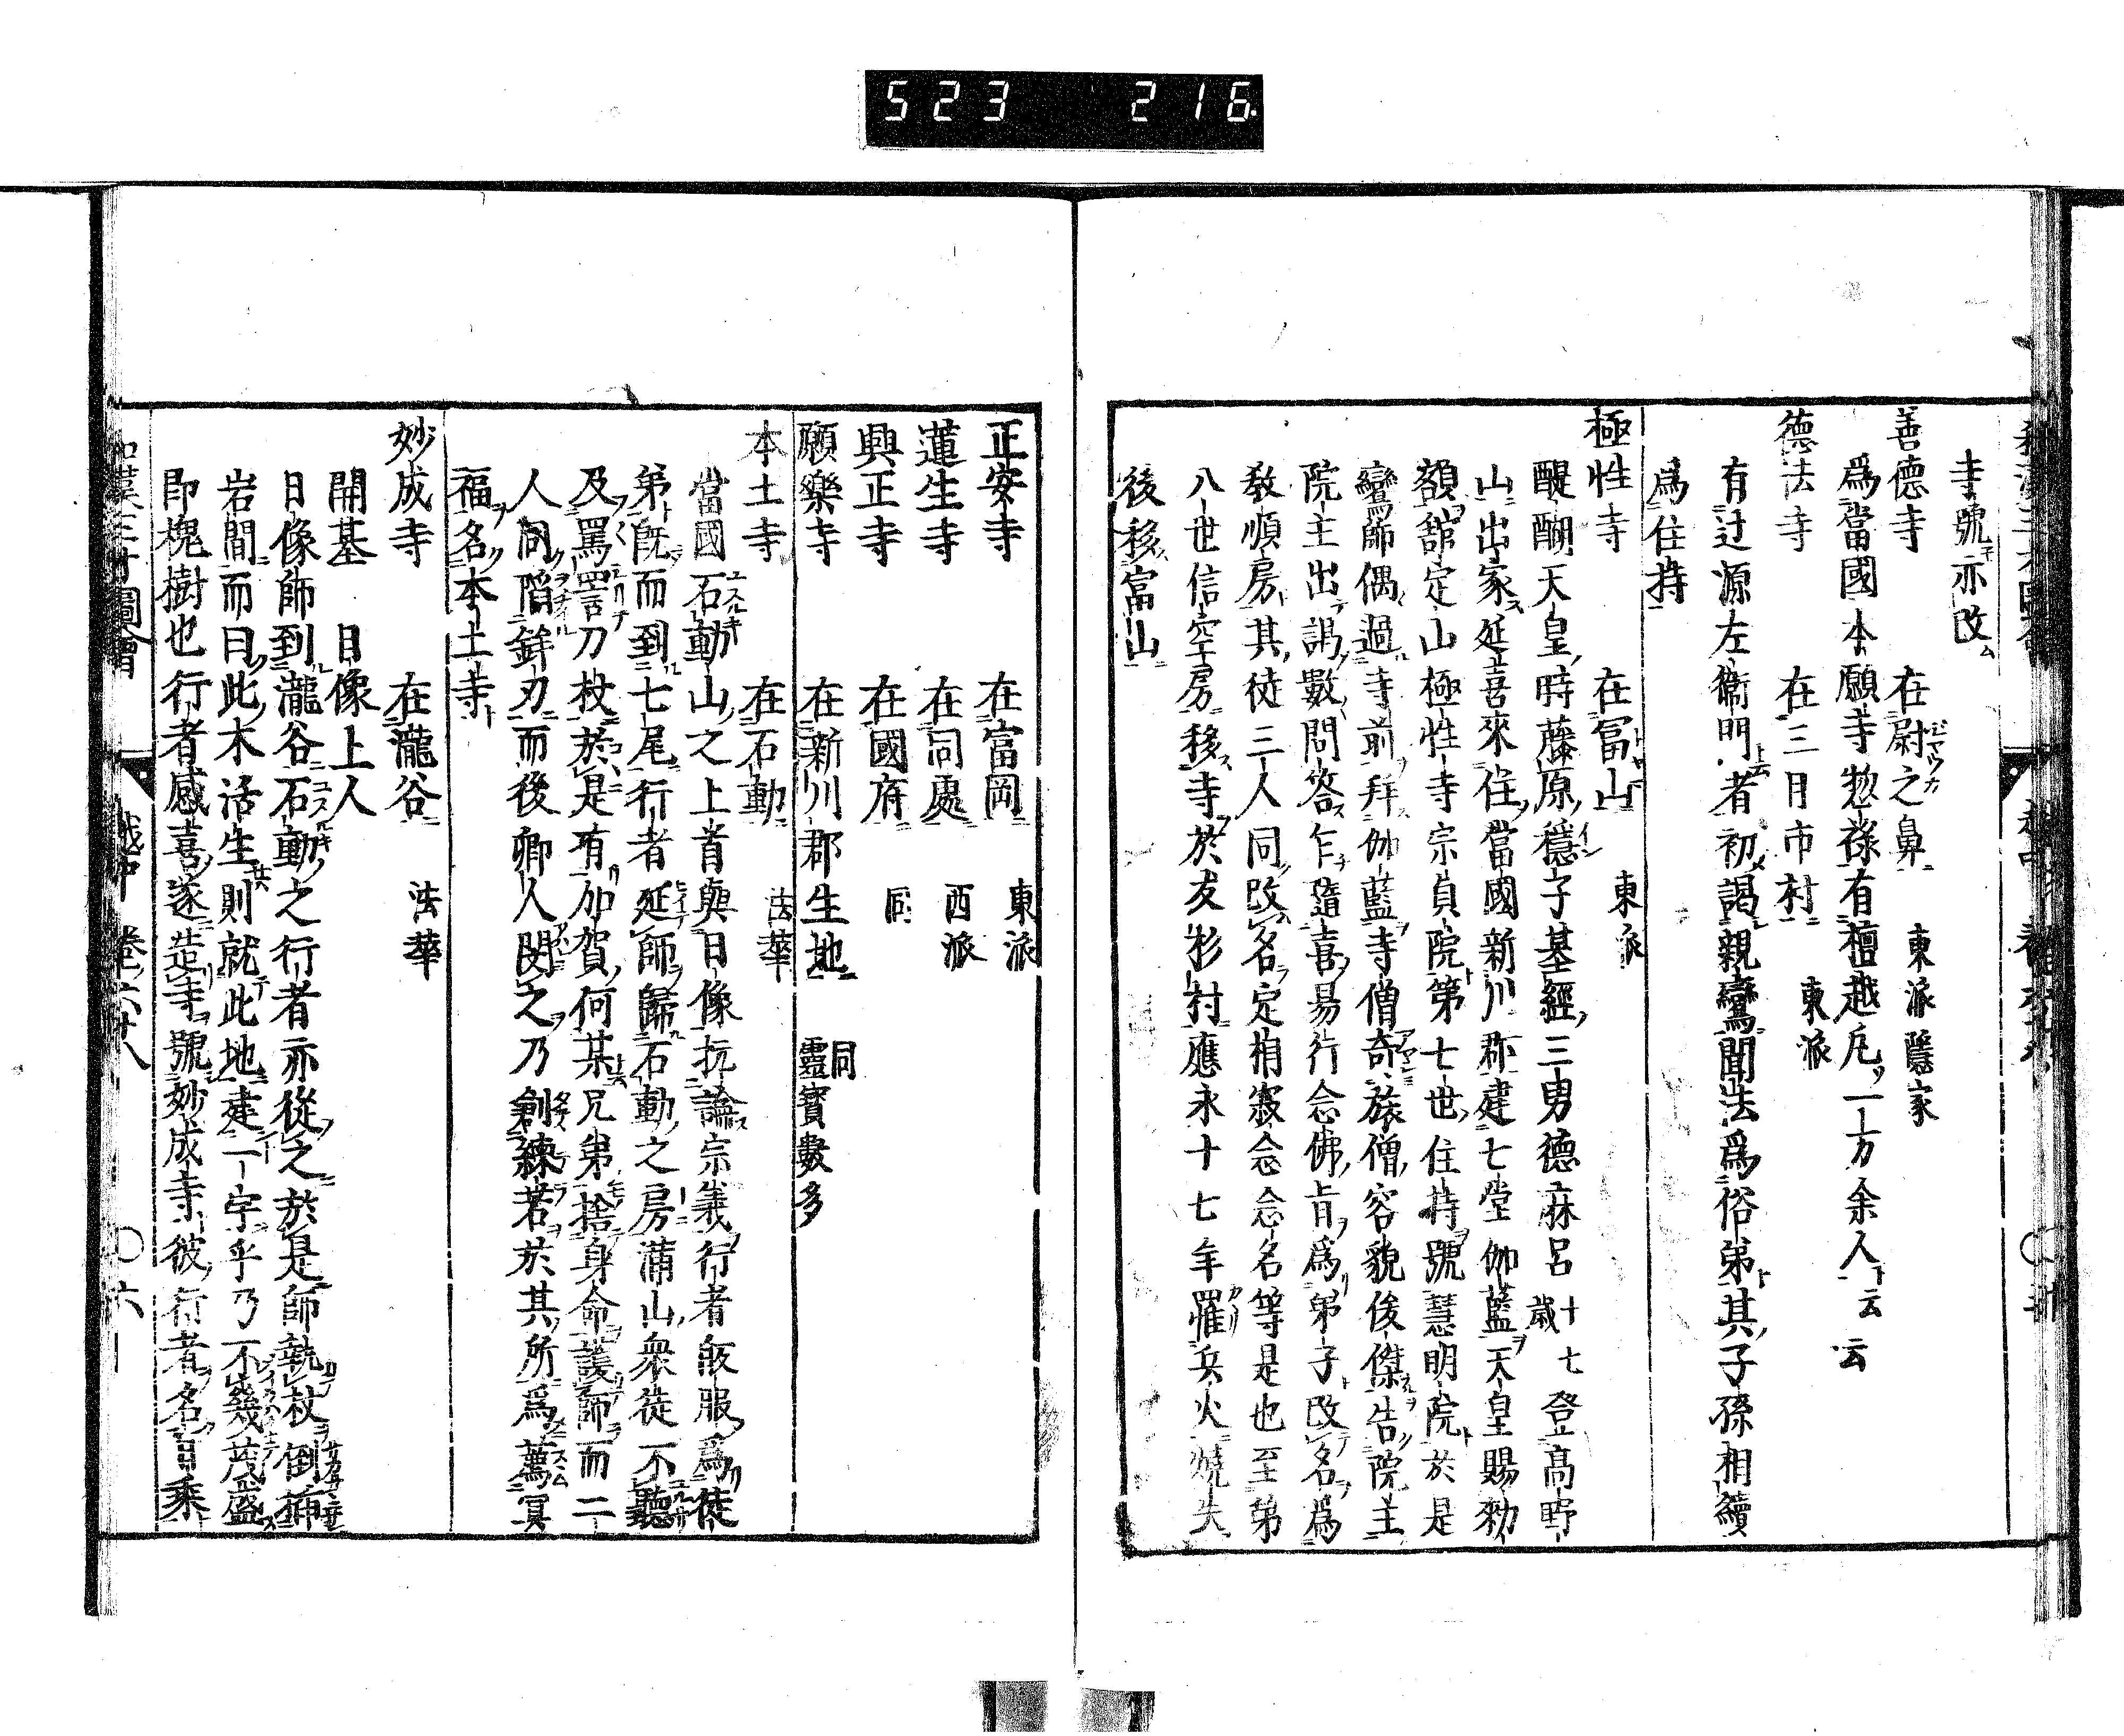 523 216
寺號亦改
善德寺 在尉之鼻 東派隱家
爲當國本願寺惣祿有檀越凡一万余人云云
德法寺 在三日市村 東派
有辻源左衞門者初謁親鸞聞法爲俗弟其子孫相續
爲住持
極性寺 在冨山 東派
醍醐天皇時藤原穩子基經三男德麻呂十七歲登高野
山出家延喜來住當國新川郡建七堂伽藍天皇賜勅
額舘定山極性寺宗貞院第七世住持號慧明院於是
鸞師偶過寺前拜伽藍寺僧奇旅僧容貌俊傑告院主
院主出謁數問答乍隨喜易行念佛肯爲弟子改名爲
敎順房其徒三人同改名定相寂念念名等是也至第
八世信空房移寺於友杉村應永十七年罹兵火燒失
後移富山
正安寺 在富岡 東派
蓮生寺 在同處 西派
興正寺 在國府 同
願樂寺 在新川郡生地 同 靈寶數多
本土寺 在石動 法華
當國石動山之上首與日像抗論宗義行者皈服爲徒
弟既而到七尾行者延師歸石動之房蒲山衆徒不聽
及罵詈刀杖於是有加賀何某兄弟捨身命護師而二
人同陷鉾刃而後鄕人閔之乃創練若於其所爲薦冥
福名本土寺
妙成寺 在瀧谷 法華
開基 日像上人
日像師到瀧谷石動之行者亦從之於是師執杖倒插
岩間而曰此木活生則就此地建一宇乎乃不幾茂盛
即槐樹也行者感喜遂造寺號妙成寺彼行者名日乘
和漢三才圖會 越中 卷六十八 〇六